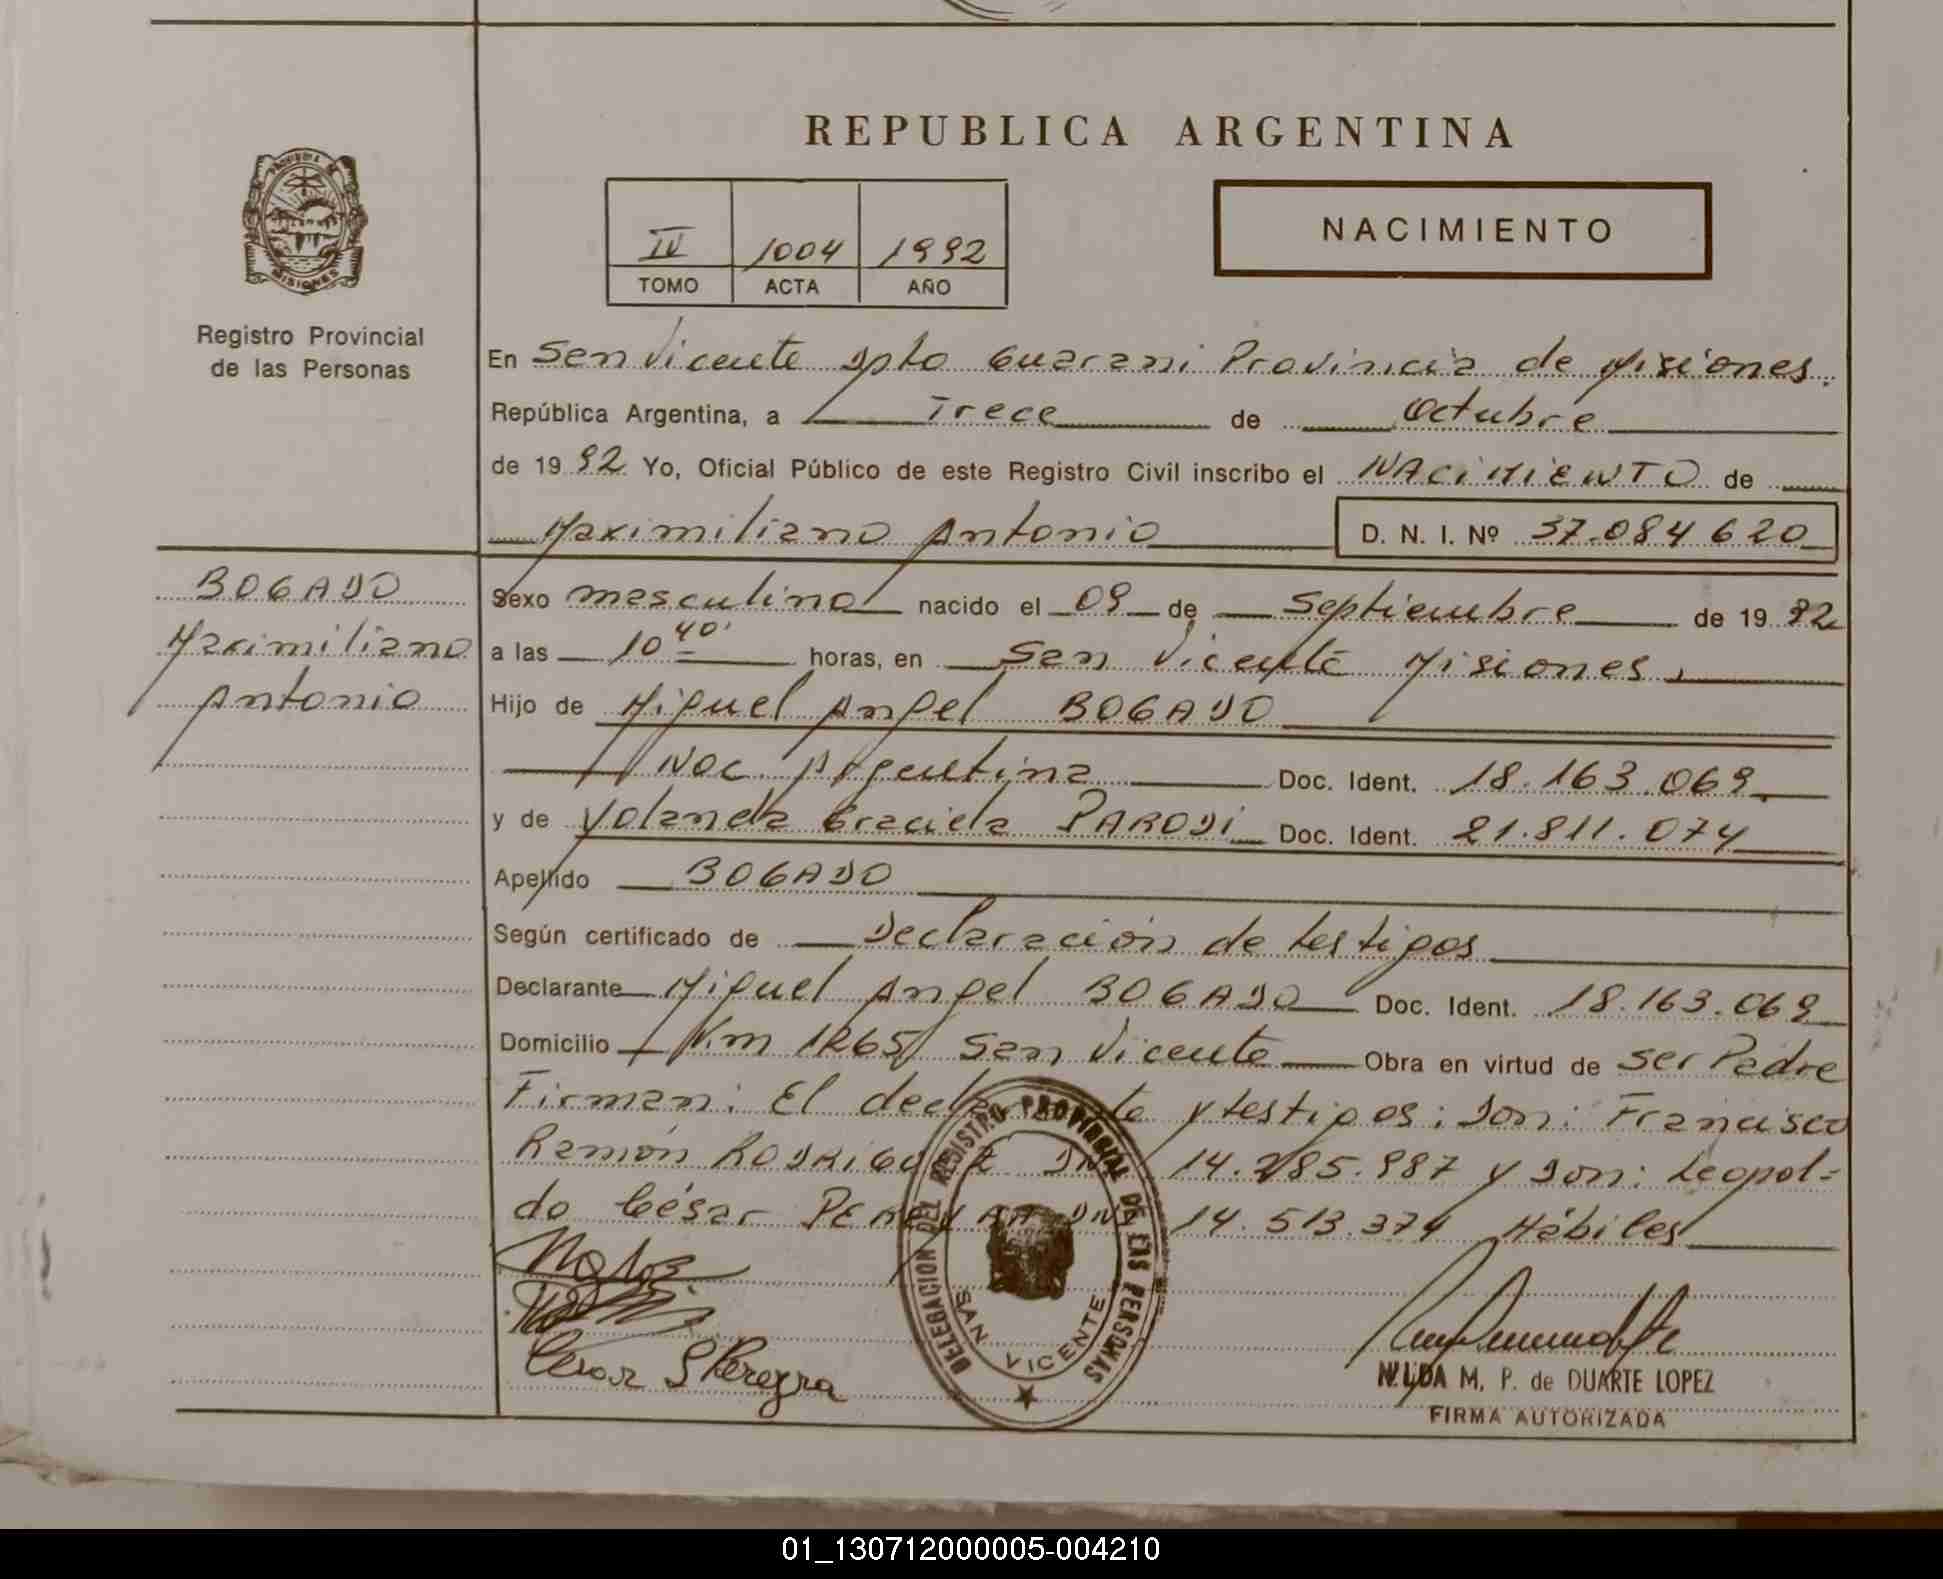 REPUBLICA ARGENTINA
PROVINCIA DE MISIONES
Registro Provincial
de las Personas
IV 1004 1992
TOMO ACTA AÑO
NACIMIENTO
En San Vicente Dpto Guarani Provincia de Misiones.
República Argentina, a Trece de Octubre
de 1992 Yo, Oficial Público de este Registro Civil inscribo el NACIMIENTO de
Maximiliano Antonio D. N. I. Nº 37.084620
BOGADO
Maximiliano
Antonio
Sexo masculino nacido el 09 de Septiembre de 1992
a las 10 40' horas, en San Vicente Misiones,
Hijo de Miguel Angel BOGADO
Nac. Argentina Doc. Ident. 18.163.069.
y de Yolanda Graciela PARODI Doc. Ident. 21.811.074
Apellido BOGADO
Según certificado de Declaración de testigos
Declarante Miguel Angel BOGADO Doc. Ident. 18.163.069
Domicilio Km 1265 San Vicente Obra en virtud de ser Padre
Firman: El declarante y testigos: Don: Francisco
Ramón RODRIGUEZ DNI 14.285.987 y Don: Leopol=
do César PEREYRA DNI 14.513.374 Hábiles
DELEGACION DEL REGISTRO PROVINCIAL DE LAS PERSONAS
SAN VICENTE
Cesar Pereyra
NILDA M. P. de DUARTE LOPEZ
FIRMA AUTORIZADA
01_130712000005-004210